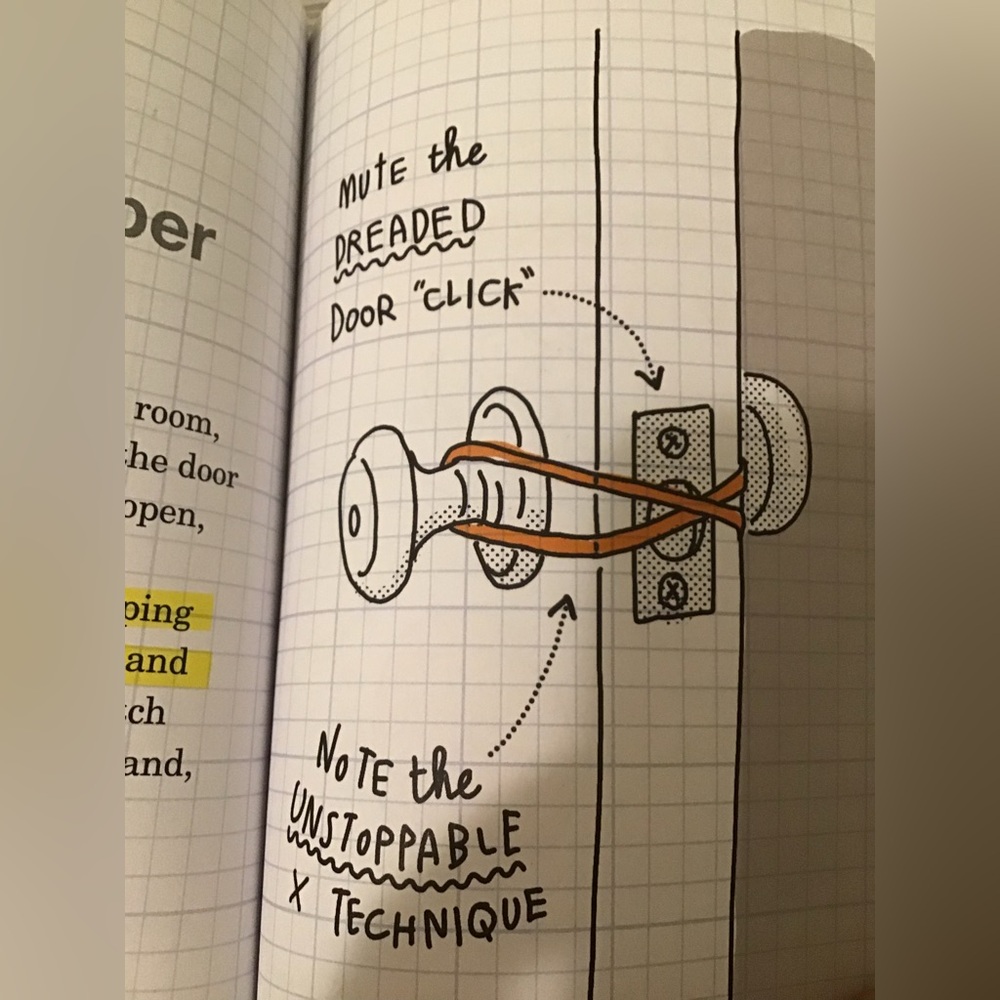 per
room,
the door
open,
ping
and
tch
and,
MUTE the
DREADED
DOOR "CLICK"
NOTE the
UNSTOPPABLE
X TECHNIQUE